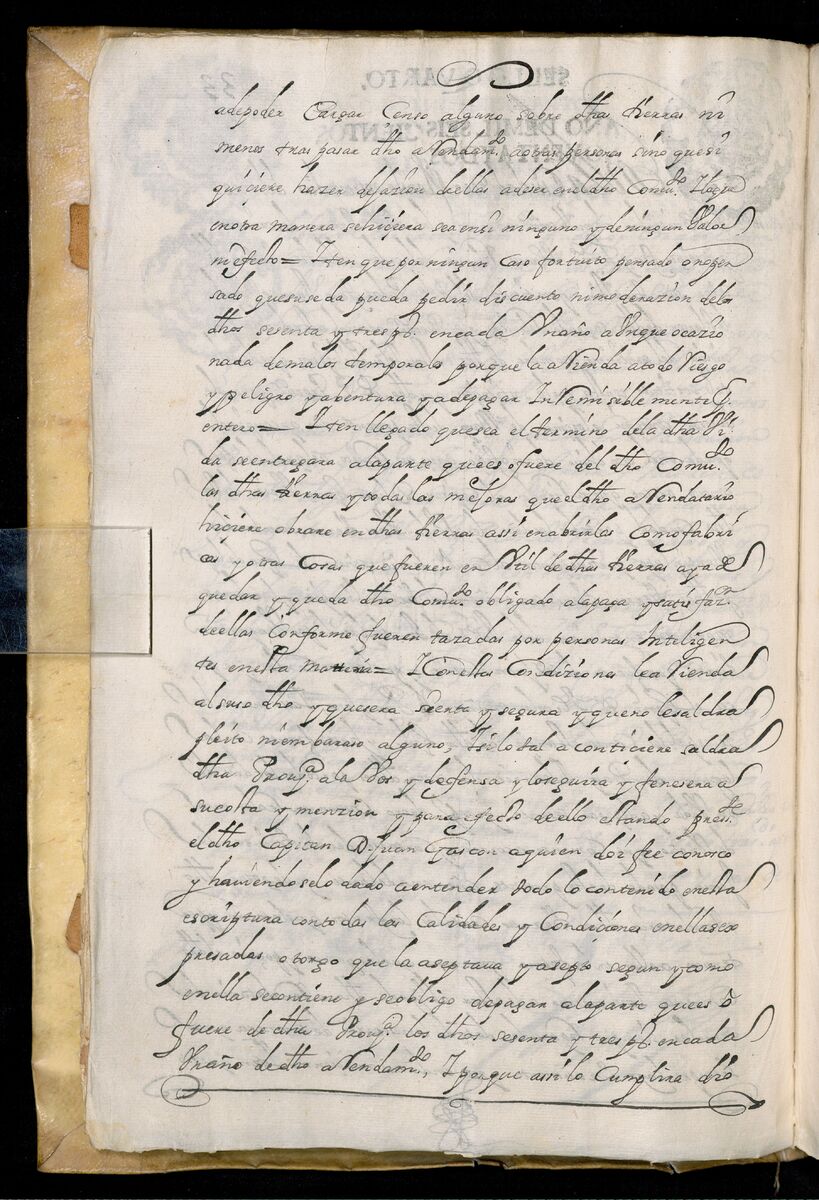 adepoder Cargar Censo alguno sobre dhas tierras ni
menos traspasar dho aRendam.to aotras personas sino que si
quiciere hazer dejazion deellas adeser enel dho Comu.to Ylo que
en otra manera sehiçiera sea ensi ninguno y deningun Valor
ni efecto = Yten que por ningun Caso fortuito pensado onopen
sado que suseda pueda pedir discuento nimoderazion delos
dhos sesenta y tres p.s encada Vnaño aVnque ocazio
nada demalos temporales porque la aRienda atodo Riesgo
y peligro y abentura y adepagar InRemisiblemente
entero = Yten llegado quesea el termino dela dha
da seentregara alaparte que es ofuere del dho Comu.to
las dhas tierras y todas las mejoras que el dho aRendatario
hiçiere obrare endhas tierras assi enabrirlas Como fabri
cas y otras Cosas que fueren en Vtil de dhas tierras aya de
quedar y queda dho Comu.to obligado alapaga y satisfaz.n
deellas Conforme fueren tazadas por personas Inteligen
tes enesta materia = YConestas Condiziones lea Rienda
alsuso dho y quesera sierta y segura y queno lesaldra
pleito niembaraso alguno, Ysilotal aContiçiere saldra
dha Prou.a ala Vos y defensa y loseguira y fenesera a
sucosta y menzion y para efecto deello estando press.te
el dho Capitan D. Juan Gascon aquien doi fee conosco
y haviendoselo dado aentender todo lo contenido enesta
escriptura contodas las Calidades y Condiçiones enellasex
presadas otorgo que la aseptava y asepto segun y como
enella secontiene y seobligo depagar alaparte quees ô
fuere de dha Prou.a los dhos sesenta y tres p.s encada
Vnaño de dho aRendam.to, Y porque assi lo Cumplira dio